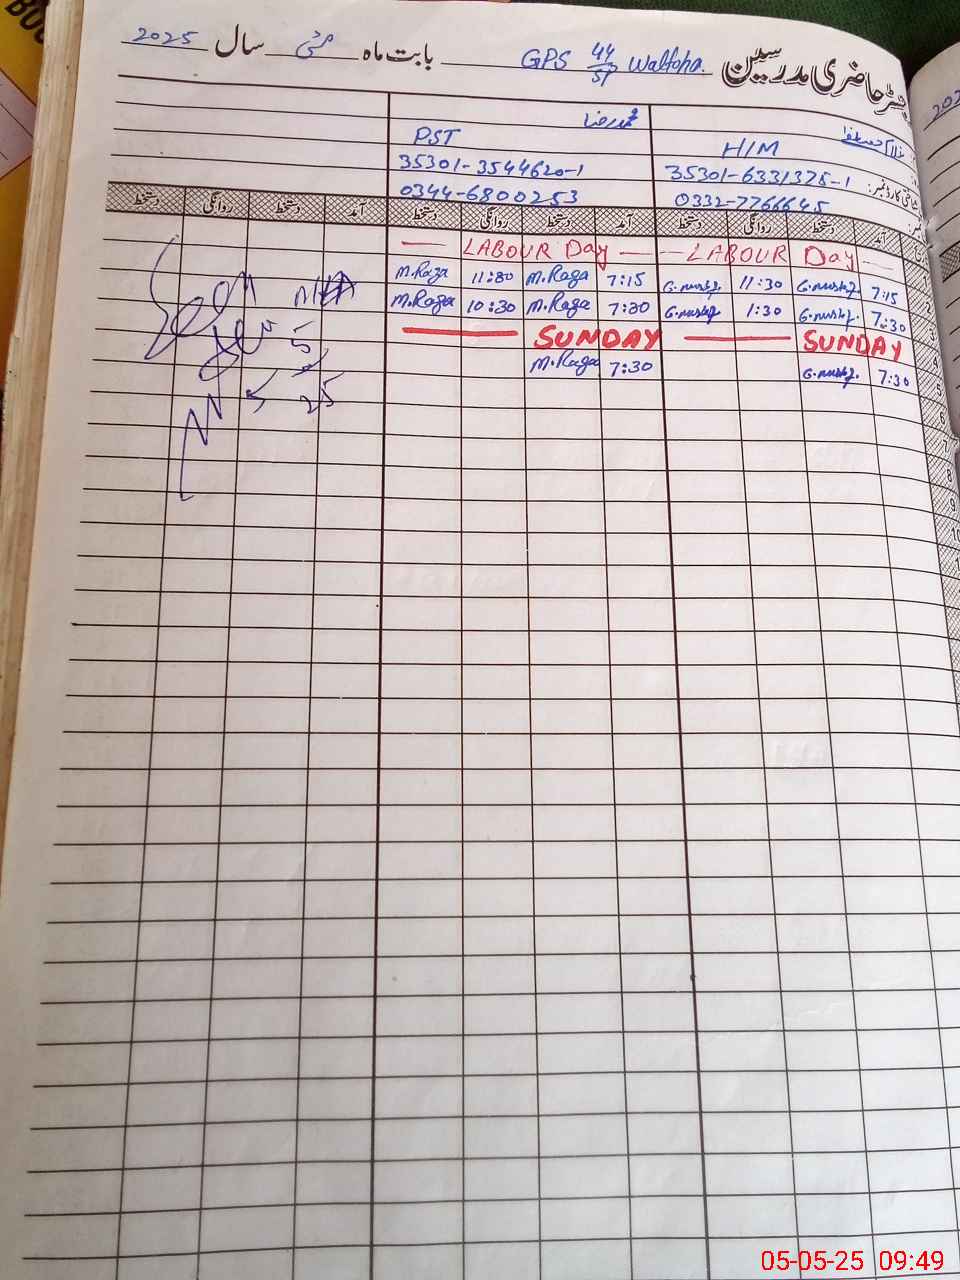 رجسٹر حاضری مدرسین GPS 44/SP Waltoha. بابت ماہ مئی سال 2025
غلام مصطفیٰ محمد رضا
H/M PST
شناختی کارڈ نمبر: 35301-6331378-1 35301-3544620-1
0332-7766645 0344-6800253
آمد دستخط روانگی دستخط آمد دستخط روانگی دستخط آمد دستخط روانگی دستخط
— LABOUR Day — — LABOUR Day —
M.Raza 11:30 M.Raza 7:15 G.mustf. 11:30 G.mustf. 7:15 2
M.Raza 10:30 M.Raza 7:30 G.mustf. 1:30 G.mustf. 7:30 3
— SUNDAY — SUNDAY 4
M.Raza 7:30 G.mustf. 7:30 5
Seen
5
25
6
7
8
9
10
202
BOO
05-05-25 09:49